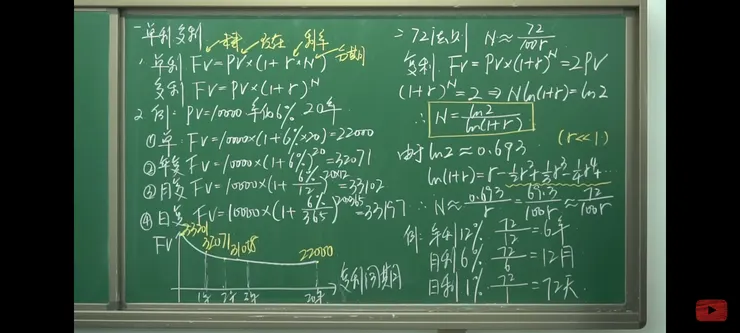 一 單利複利
本利 現在 利率
1. 單利 FV=PV×(1+r×N) 期
複利 FV=PV×(1+r)^N
2. 例: PV=10000 年仙6% 20年
① 單: FV=10000×(1+6%×20)=22000
② 年复 FV=10000×(1+6%)^20=32071
③ 月复 FV=10000×(1+6%/12)^20×12=33102
④ 日复 FV=10000×(1+6%/365)^20×365=33197
FV
33201
32071
31078
22000
1年 2年 20年
复利周期
二 72法则 N≈72/100r
复利 FV=PV×(1+r)^N=2PV
(1+r)^N=2⇒Nln(1+r)=ln2
∴ N=ln2/ln(1+r)
由于 ln2≈0.693 (r<<1)
ln(1+r)=r-1/2r²+1/3r³-1/4r⁴…
∴ N≈0.693/r=69.3/100r≈72/100r
例: 年利12% 72/12=6年
月利6% 72/6=12月
日利1% 72/1=72天